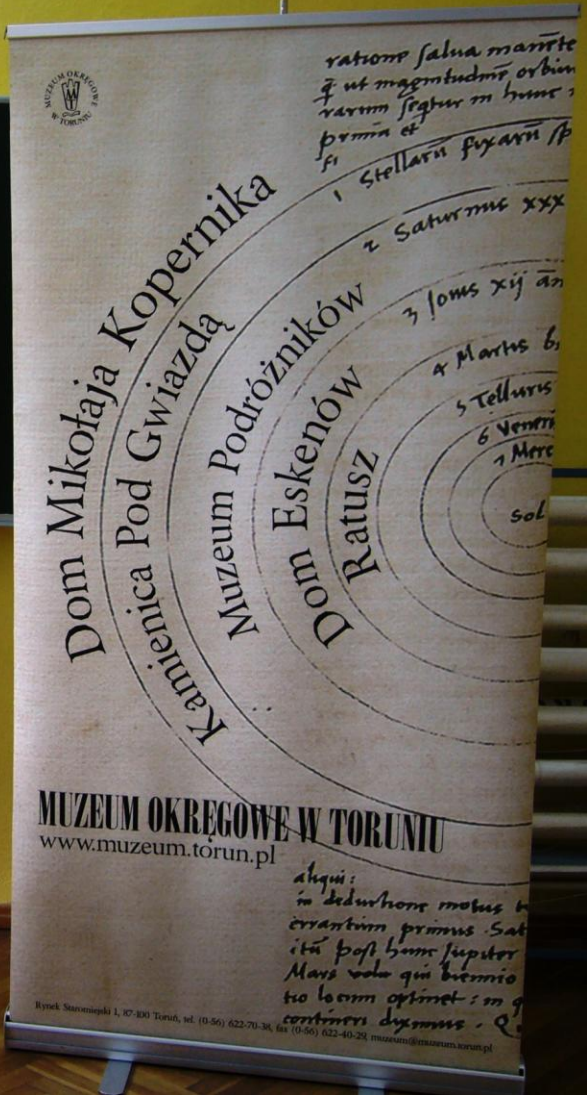 MUZEUM OKRĘGOWE
W TORUNIU
ratione salva manēte
ut magnitudinē orbiu
rarum seqtur in hunc
prima et
fi
1 Stellarū fixarū sp
2 Saturnus xxx
3 Iovis xij an
4 Martis bi
5 Telluris
6 Veneri
7 Merc
Sol
Dom Mikołaja Kopernika
Kamienica Pod Gwiazdą
Muzeum Podróżników
Dom Eskenów
Ratusz
MUZEUM OKRĘGOWE W TORUNIU
www.muzeum.torun.pl
aliqui:
in deductione motus
errantium primus Sat
itū post hunc Jupiter
Mars qui biennio
tio locum optinet: in q
contineri diximus. Q
Rynek Staromiejski 1, 87-100 Toruń, tel. (0-56) 622-70-38, fax (0-56) 622-40-29, muzeum@muzeum.torun.pl